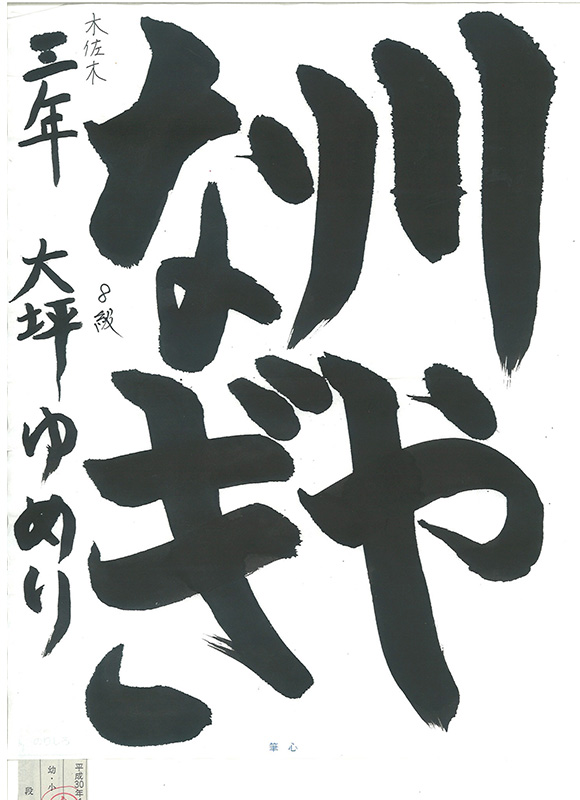 川や
なぎ
木佐木
三年 大坪ゆめり
8級
筆心
平成30年
幼・小
段